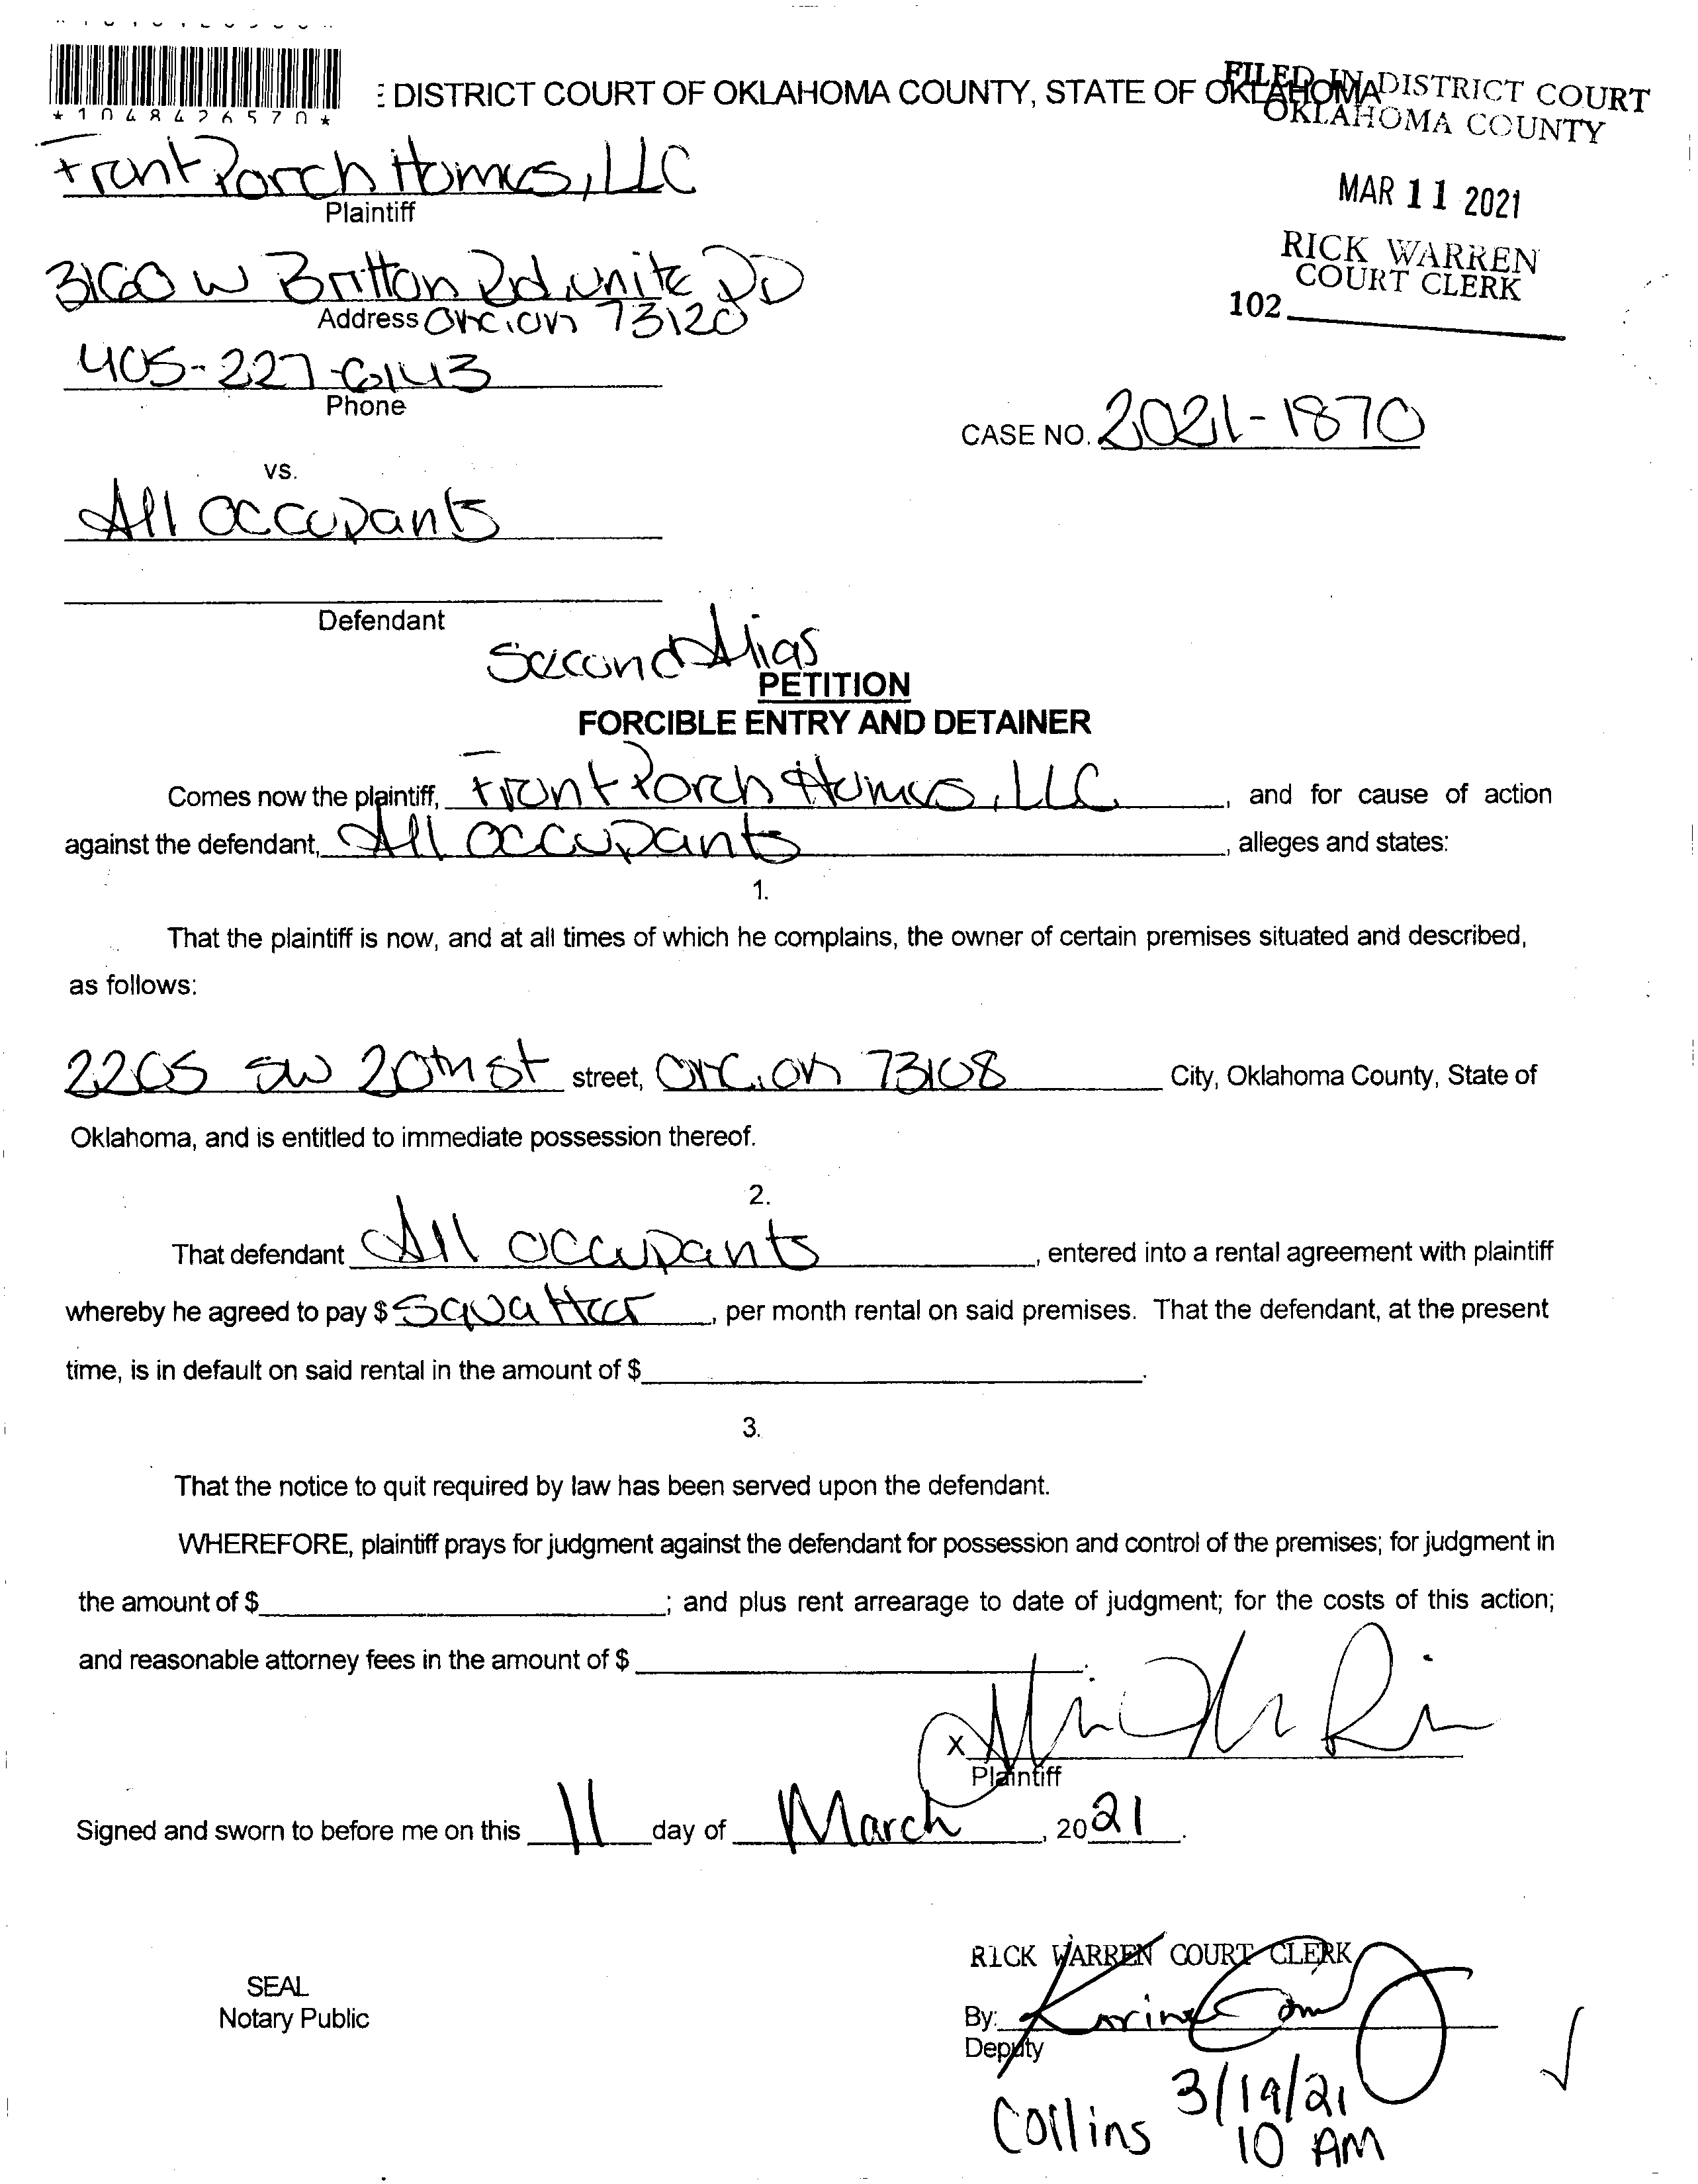 *1048426570*
DISTRICT COURT OF OKLAHOMA COUNTY, STATE OF OKLAHOMA
FILED IN DISTRICT COURT
OKLAHOMA COUNTY
MAR 11 2021
RICK WARREN
COURT CLERK
102
Front Porch Homes, LLC
Plaintiff
3160 W Britton Rd, unite DD
Address OKC, OK 73120
405-227-6143
Phone
CASE NO. 2021-1870
vs.
All occupants
Defendant
Second Alias
PETITION
FORCIBLE ENTRY AND DETAINER
Comes now the plaintiff, Front Porch Homes, LLC, and for cause of action
against the defendant, All occupants, alleges and states:
1.
That the plaintiff is now, and at all times of which he complains, the owner of certain premises situated and described,
as follows:
2205 SW 20th st street, OKC, OK 73108 City, Oklahoma County, State of
Oklahoma, and is entitled to immediate possession thereof.
2.
That defendant All occupants, entered into a rental agreement with plaintiff
whereby he agreed to pay $ Squatter, per month rental on said premises. That the defendant, at the present
time, is in default on said rental in the amount of $.
3.
That the notice to quit required by law has been served upon the defendant.
WHEREFORE, plaintiff prays for judgment against the defendant for possession and control of the premises; for judgment in
the amount of $; and plus rent arrearage to date of judgment; for the costs of this action;
and reasonable attorney fees in the amount of $.
X
Plaintiff
Signed and sworn to before me on this 11 day of March, 2021.
RICK WARREN COURT CLERK
SEAL
Notary Public
By:
Deputy
Collins 3/19/21
10 AM